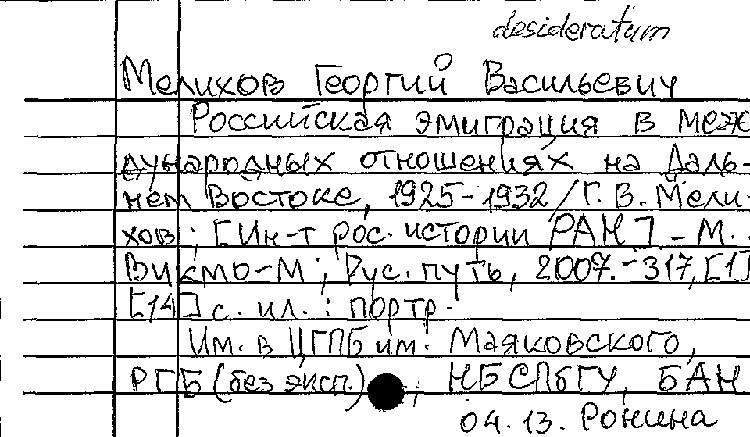 desideratum
Мелихов Георгий Васильевич
Российская эмиграция в меж
дународных отношениях на Даль-
нем Востоке, 1925-1932 / Г. В. Мели-
хов ; [Ин-т рос. истории РАН]. - М. :
Викмо-М ; Рус. путь, 2007. - 317, [1]
[14] с. ил. : портр.
Им. в ЦГПБ им. Маяковского,
РГБ (без эксп.) ; НБСПбГУ, БАН
04.13. Ронина